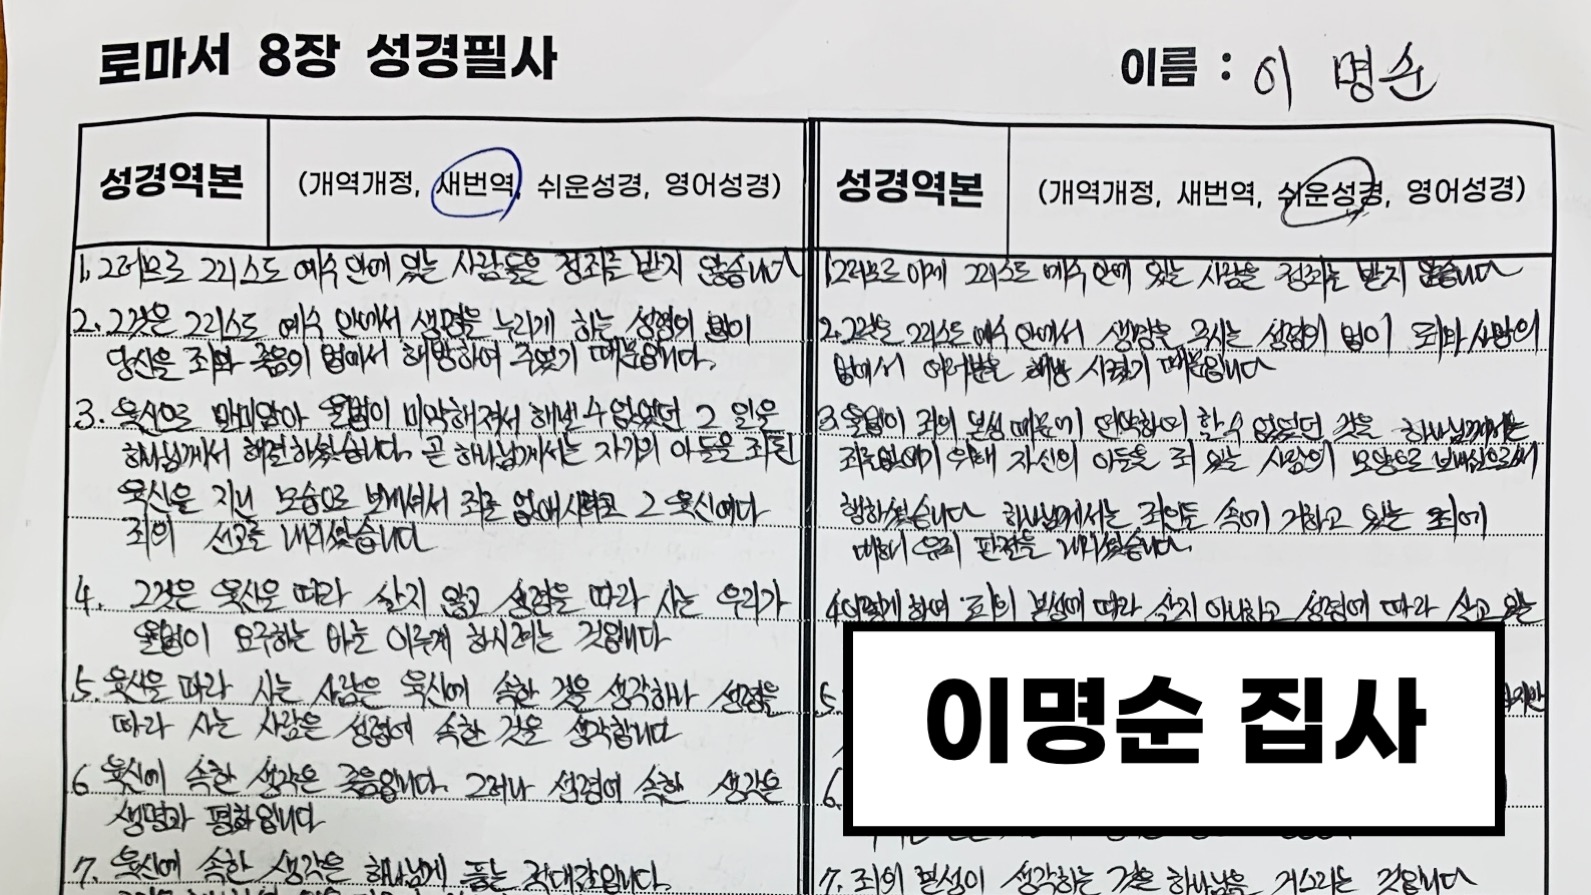 로마서 8장 성경필사
이름 : 이 명순
성경역본 (개역개정, 새번역, 쉬운성경, 영어성경)
1. 그러므로 그리스도 예수 안에 있는 사람들은 정죄를 받지 않습니다
2. 그것은 그리스도 예수 안에서 생명을 누리게 하는 성령의 법이
당신을 죄와 죽음의 법에서 해방하여 주었기 때문입니다.
3. 육신으로 말미암아 율법이 미약해져서 해낼 수 없었던 그 일을
하나님께서 해결하셨습니다. 곧 하나님께서는 자기의 아들을 죄된
육신을 지닌 모습으로 보내셔서 죄를 없애시려고 그 육신에다
죄의 선고를 내리셨습니다
4. 그것은 육신을 따라 살지 않고 성령을 따라 사는 우리가
율법이 요구하는 바를 이루게 하시려는 것입니다
5. 육신을 따라 사는 사람은 육신에 속한 것을 생각하나 성령을
따라 사는 사람은 성령에 속한 것을 생각합니다
6 육신에 속한 생각은 죽음입니다. 그러나 성령에 속한 생각은
생명과 평화입니다
7. 육신에 속한 생각은 하나님께 품는 적대감입니다.
성경역본 (개역개정, 새번역, 쉬운성경, 영어성경)
1. 그러므로 이제 그리스도 예수 안에 있는 사람은 정죄는 받지 않습니다
2. 그것은 그리스도 예수 안에서 생명을 주시는 성령의 법이 죄와 사망의
법에서 여러분을 해방 시켰기 때문입니다
3. 율법이 죄의 본성 때문에 연약하여 할 수 없었던 것을 하나님께서는
죄를 없애기 위해 자신의 아들을 죄 있는 사람의 모양으로 보내심으로써
행하셨습니다 하나님께서는 죄인들 속에 거하고 있는 죄에
대하여 유죄 판결을 내리셨습니다.
4 이렇게 하여 죄의 본성에 따라 살지 아니하고 성령에 따라 살고 있는
5.
6.
7. 죄의 본성이 생각하는 것은 하나님을 거스르는 것입니다
이명순 집사